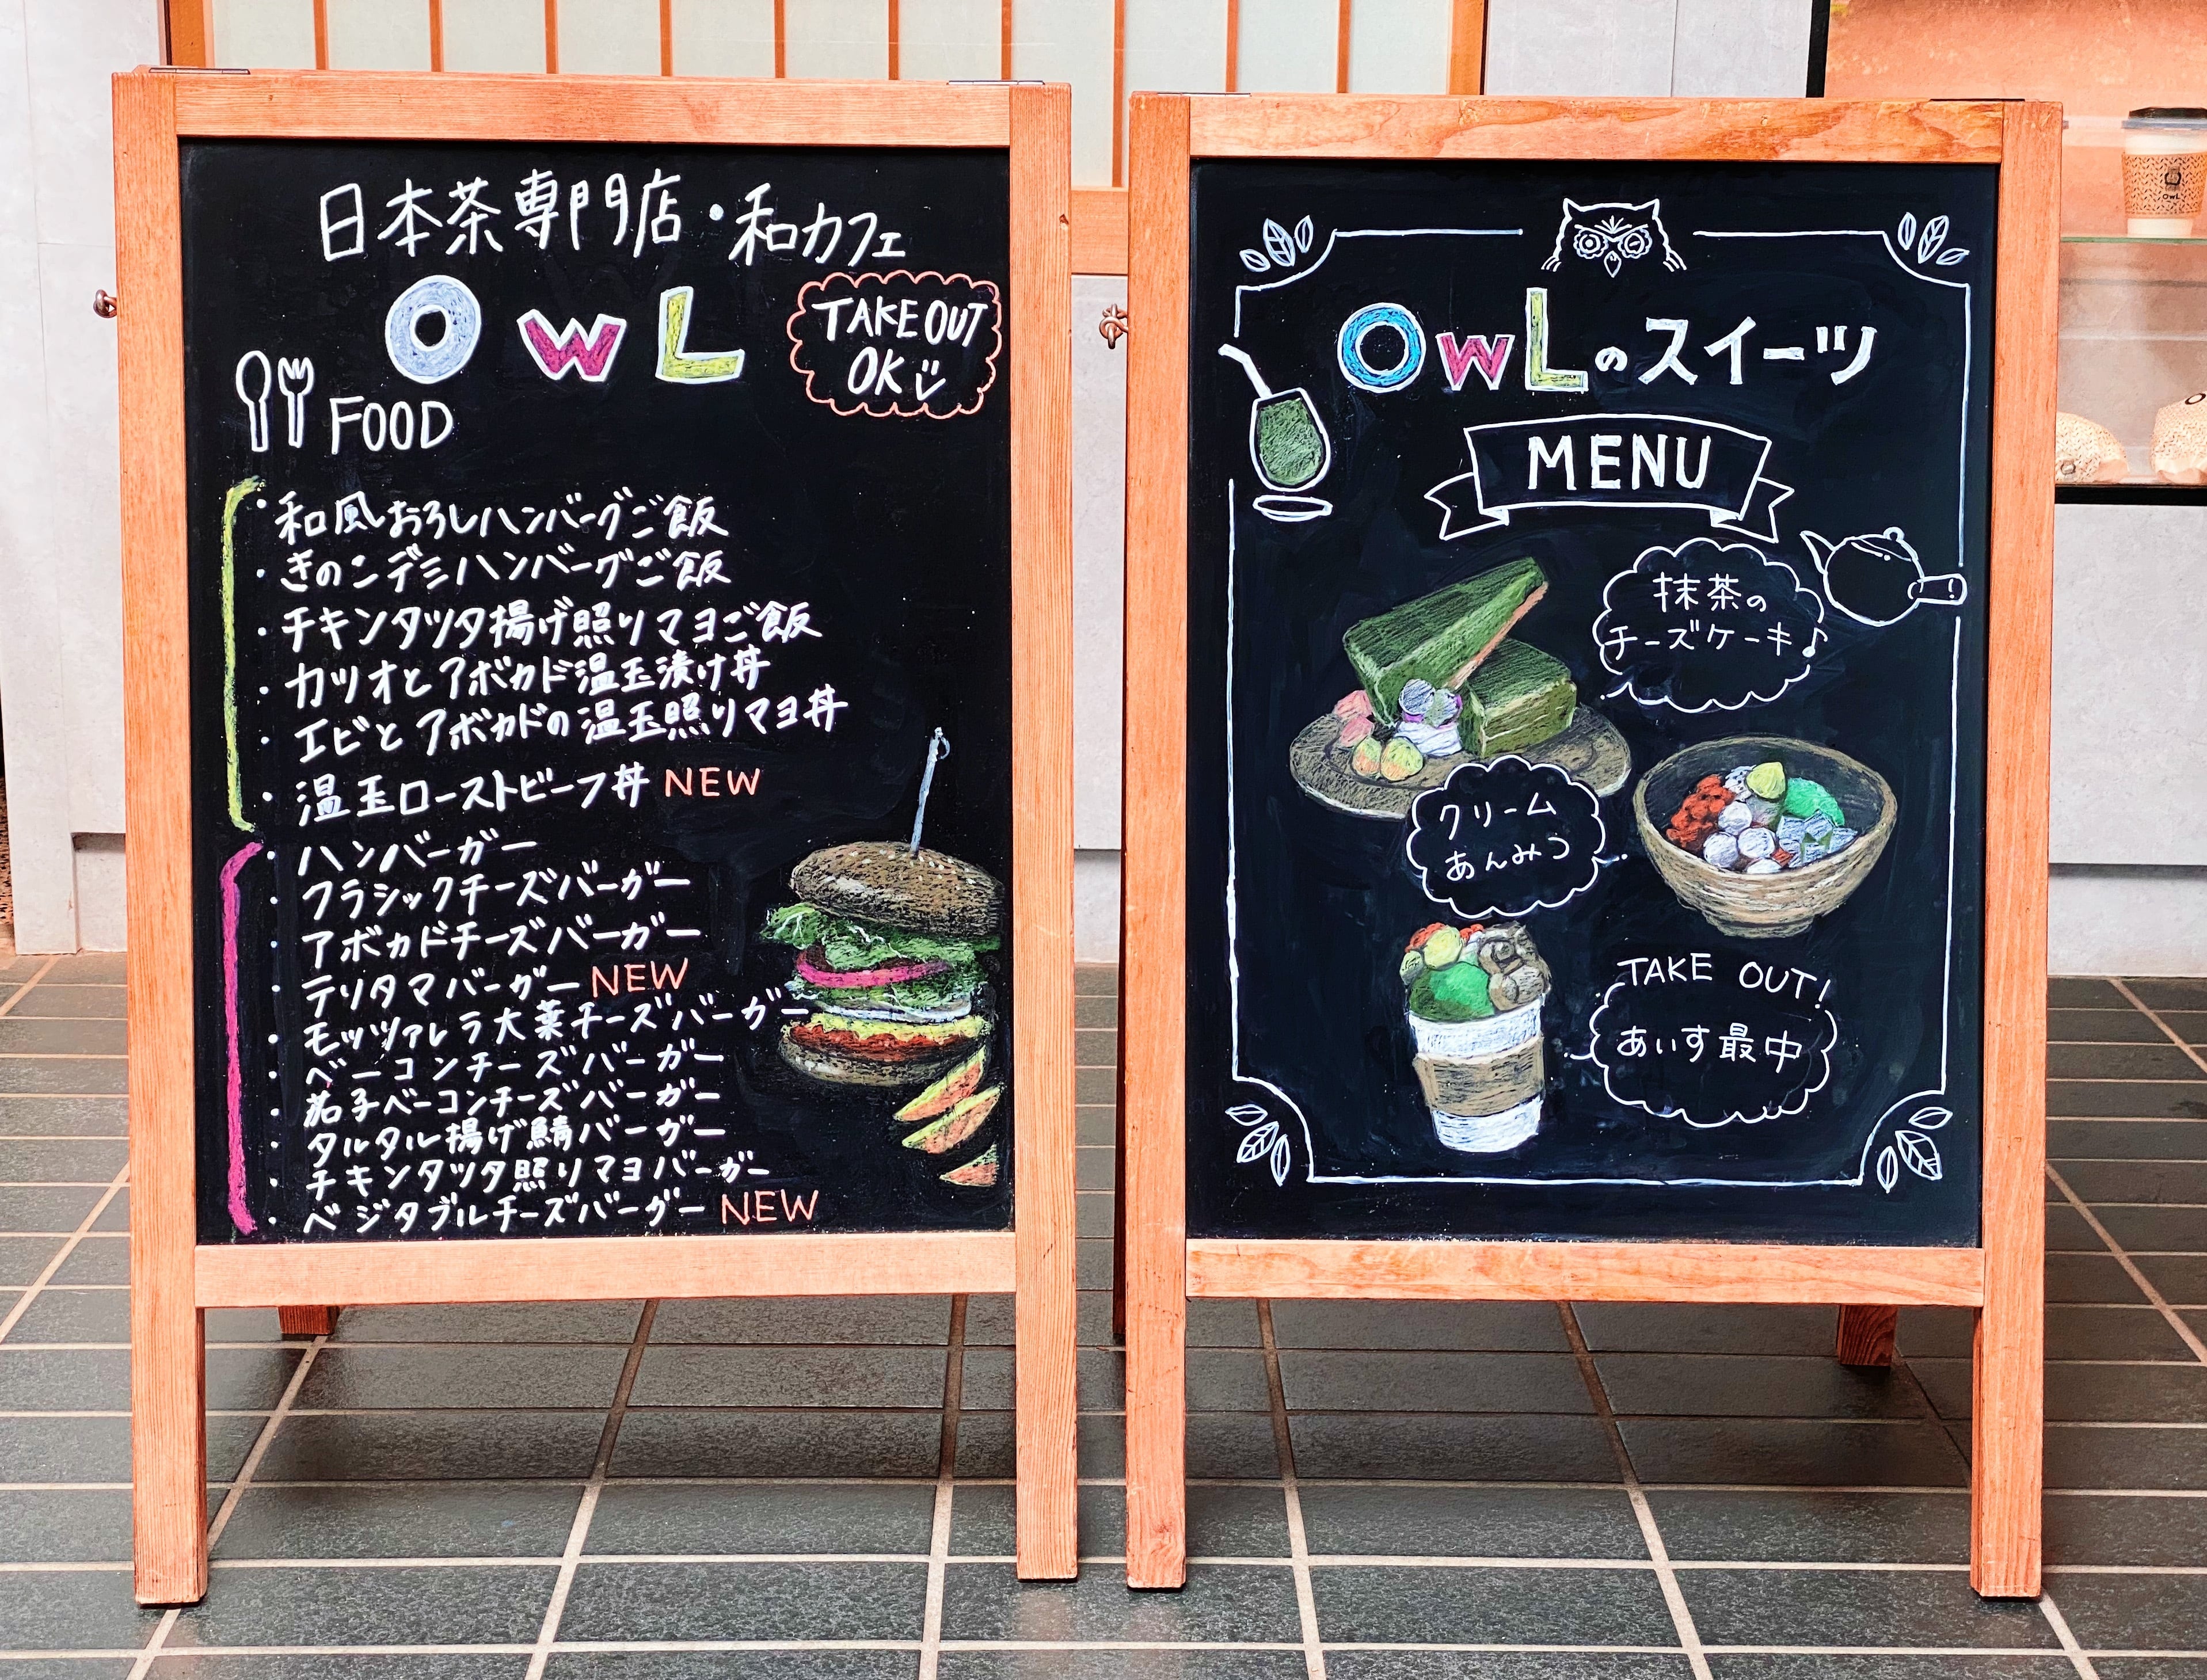 日本茶専門店・和カフェ
OWL
TAKE OUT
OK
FOOD
・和風おろしハンバーグご飯
・きのこデミハンバーグご飯
・チキンタツタ揚げ照りマヨご飯
・カツオとアボカド温玉漬け丼
・エビとアボカドの温玉照りマヨ丼
・温玉ローストビーフ丼 NEW
・ハンバーガー
・クラシックチーズバーガー
・アボカドチーズバーガー
・テリタマバーガー NEW
・モッツァレラ大葉チーズバーガー
・ベーコンチーズバーガー
・茄子ベーコンチーズバーガー
・タルタル揚げ鯖バーガー
・チキンタツタ照りマヨバーガー
・ベジタブルチーズバーガー NEW
OWLのスイーツ
MENU
抹茶の
チーズケーキ♪
クリーム
あんみつ
TAKE OUT!
あいす最中
OWL